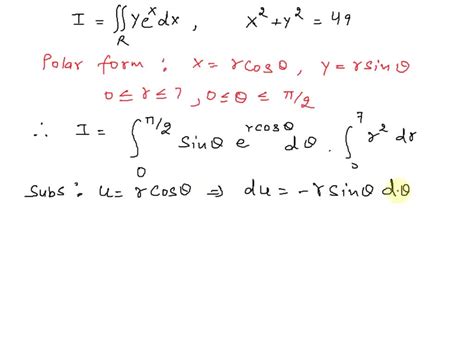 I = ∬_R y e^x dx , x² + y² = 49
Polar form : x = r cosθ , y = r sinθ
0 ≤ r ≤ 7 , 0 ≤ θ ≤ π/2
∴ I = ∫_0^{π/2} sinθ e^{r cosθ} dθ . ∫_0^7 r² dr
Subs : u = r cosθ ⇒ du = - r sinθ d.θ